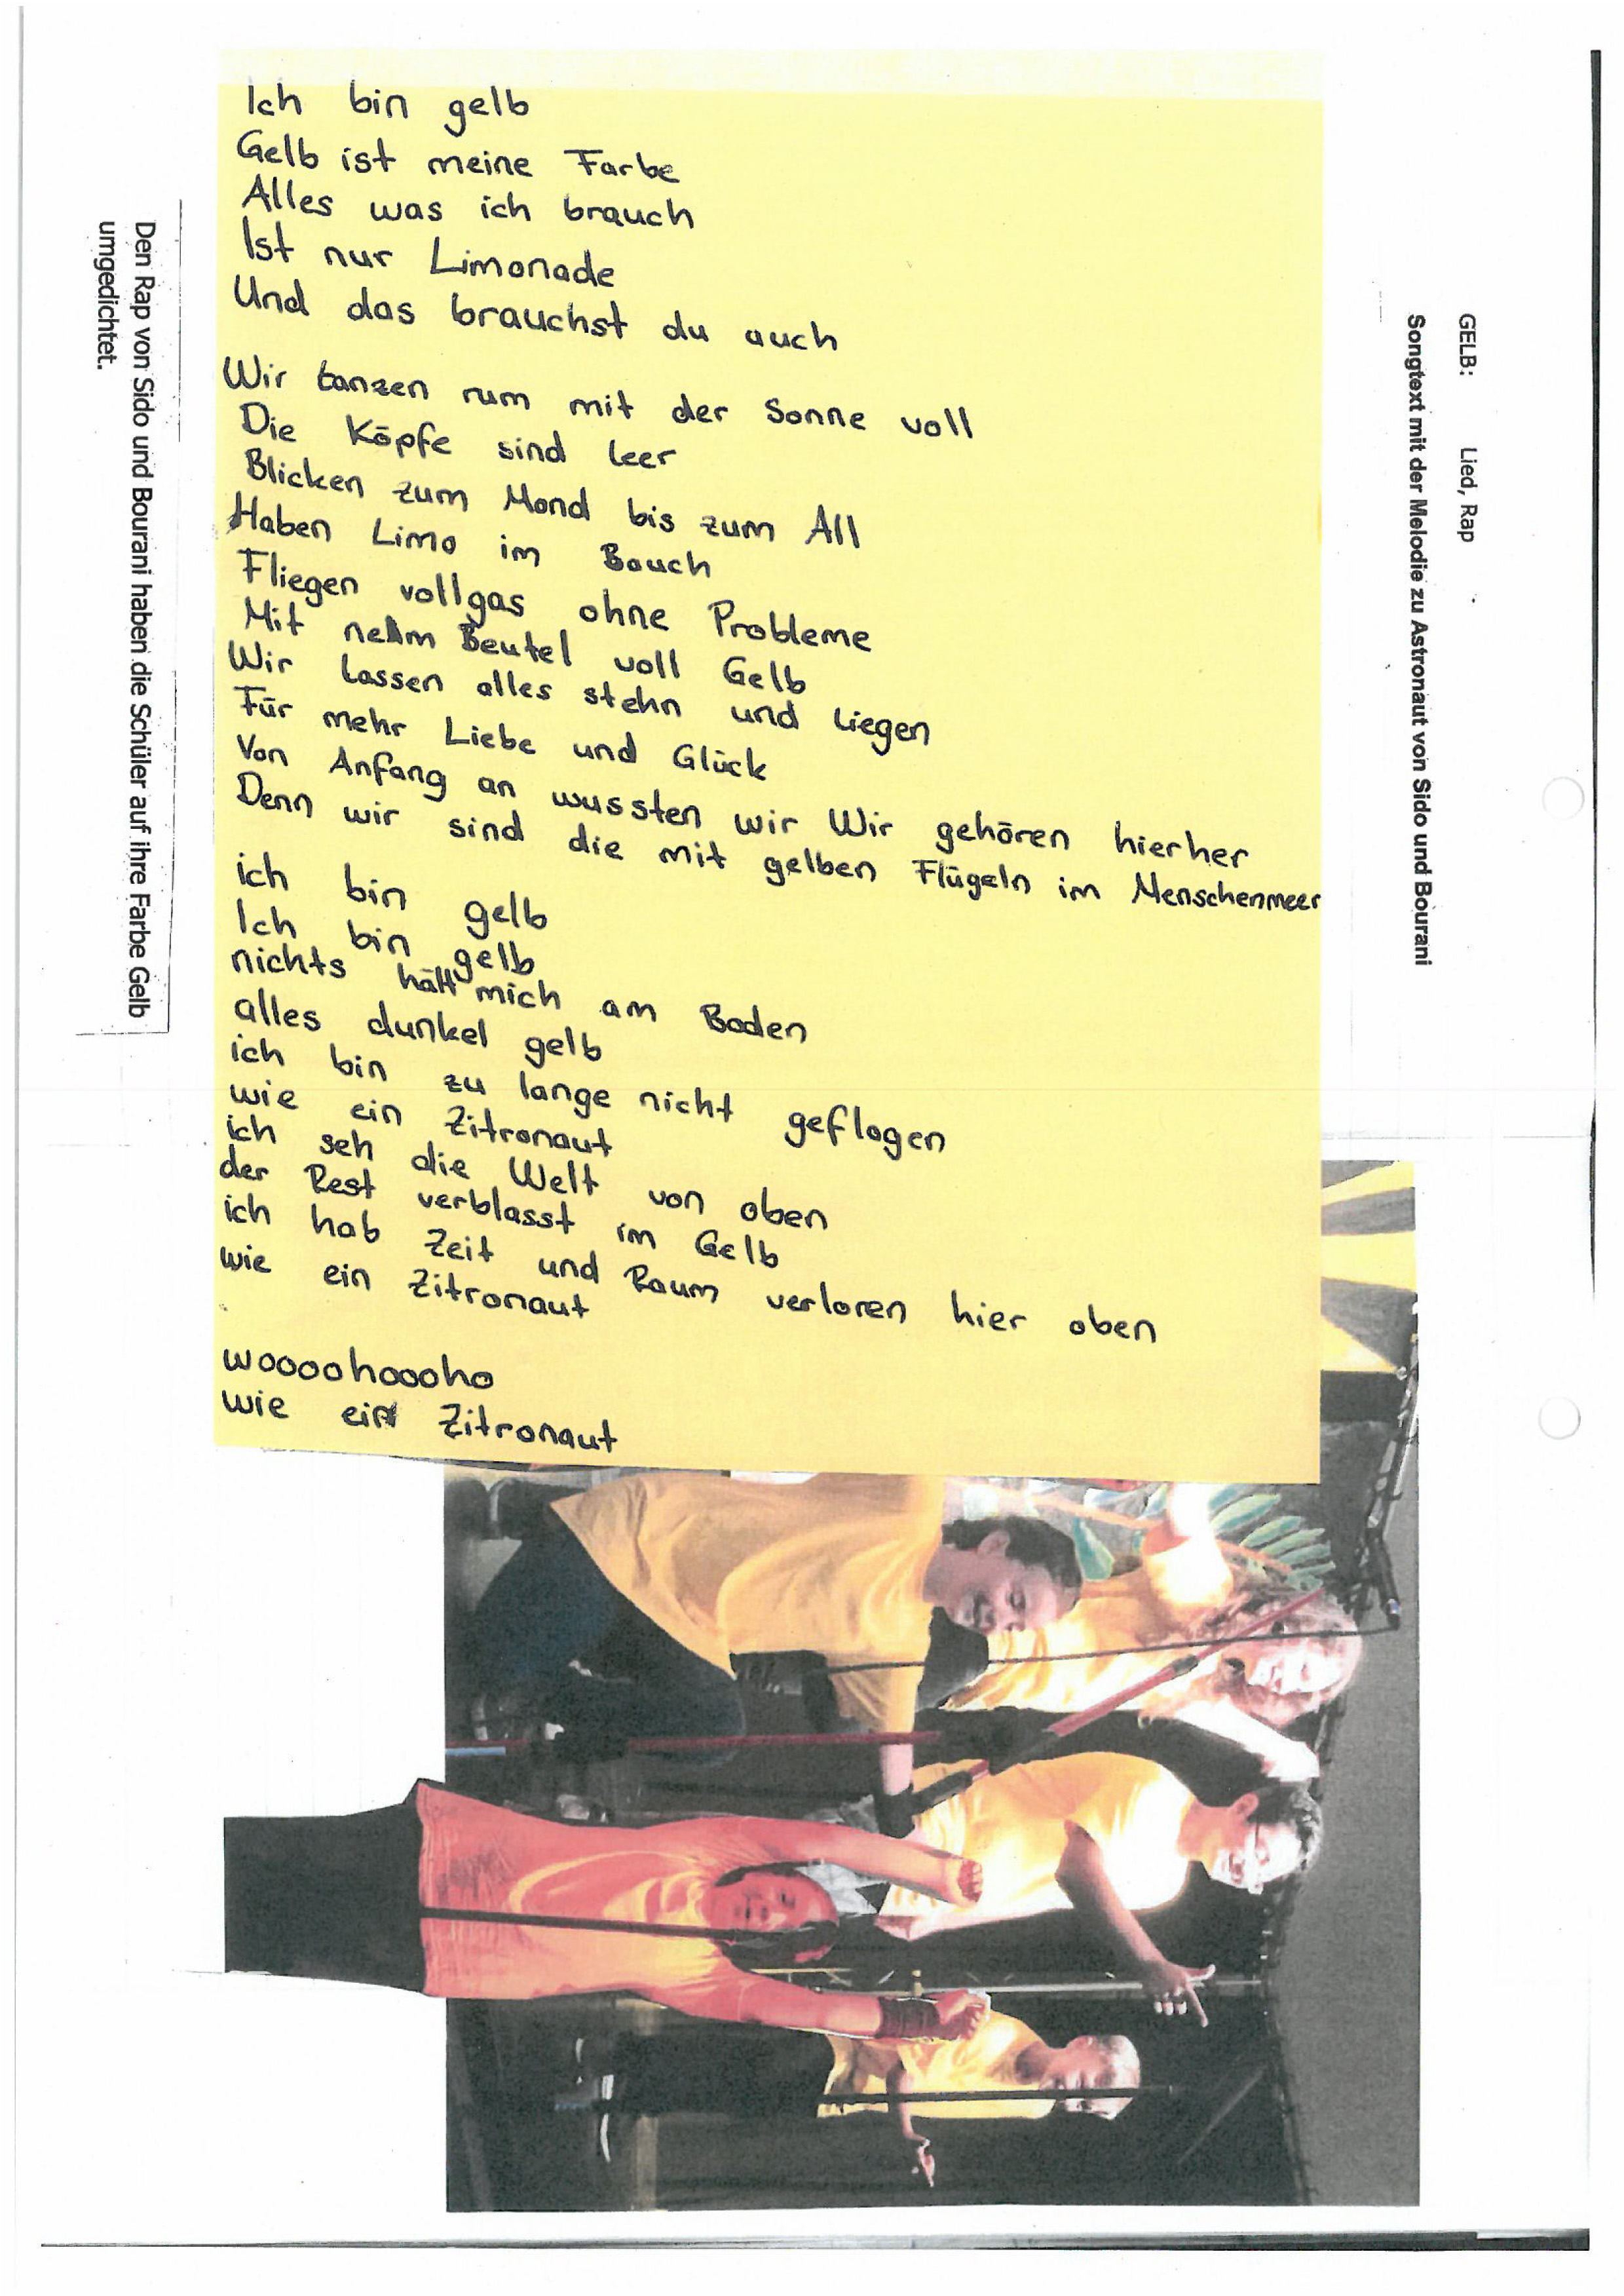 GELB: Lied, Rap
Songtext mit der Melodie zu Astronaut von Sido und Bourani
Ich bin gelb
Gelb ist meine Farbe
Alles was ich brauch
Ist nur Limonade
Und das brauchst du auch
Wir tanzen rum mit der Sonne voll
Die Köpfe sind leer
Blicken zum Mond bis zum All
Haben Limo im Bauch
Fliegen vollgas ohne Probleme
Mit Beutel voll Gelb
Wir lassen alles stehn und liegen
Für mehr Liebe und Glück
Von Anfang an wussten wir Wir gehören hierher
Denn wir sind die mit gelben Flügeln im Menschenmeer
ich bin gelb
Ich bin gelb
nichts hält mich am Boden
alles dunkel gelb
ich bin zu lange nicht geflogen
wie ein Zitronaut
ich seh die Welt von oben
der Rest verblasst im Gelb
ich hab Zeit und Raum verloren hier oben
wie ein Zitronaut
woooohoooho
wie ein Zitronaut
Den Rap von Sido und Bourani haben die Schüler auf ihre Farbe Gelb
umgedichtet.